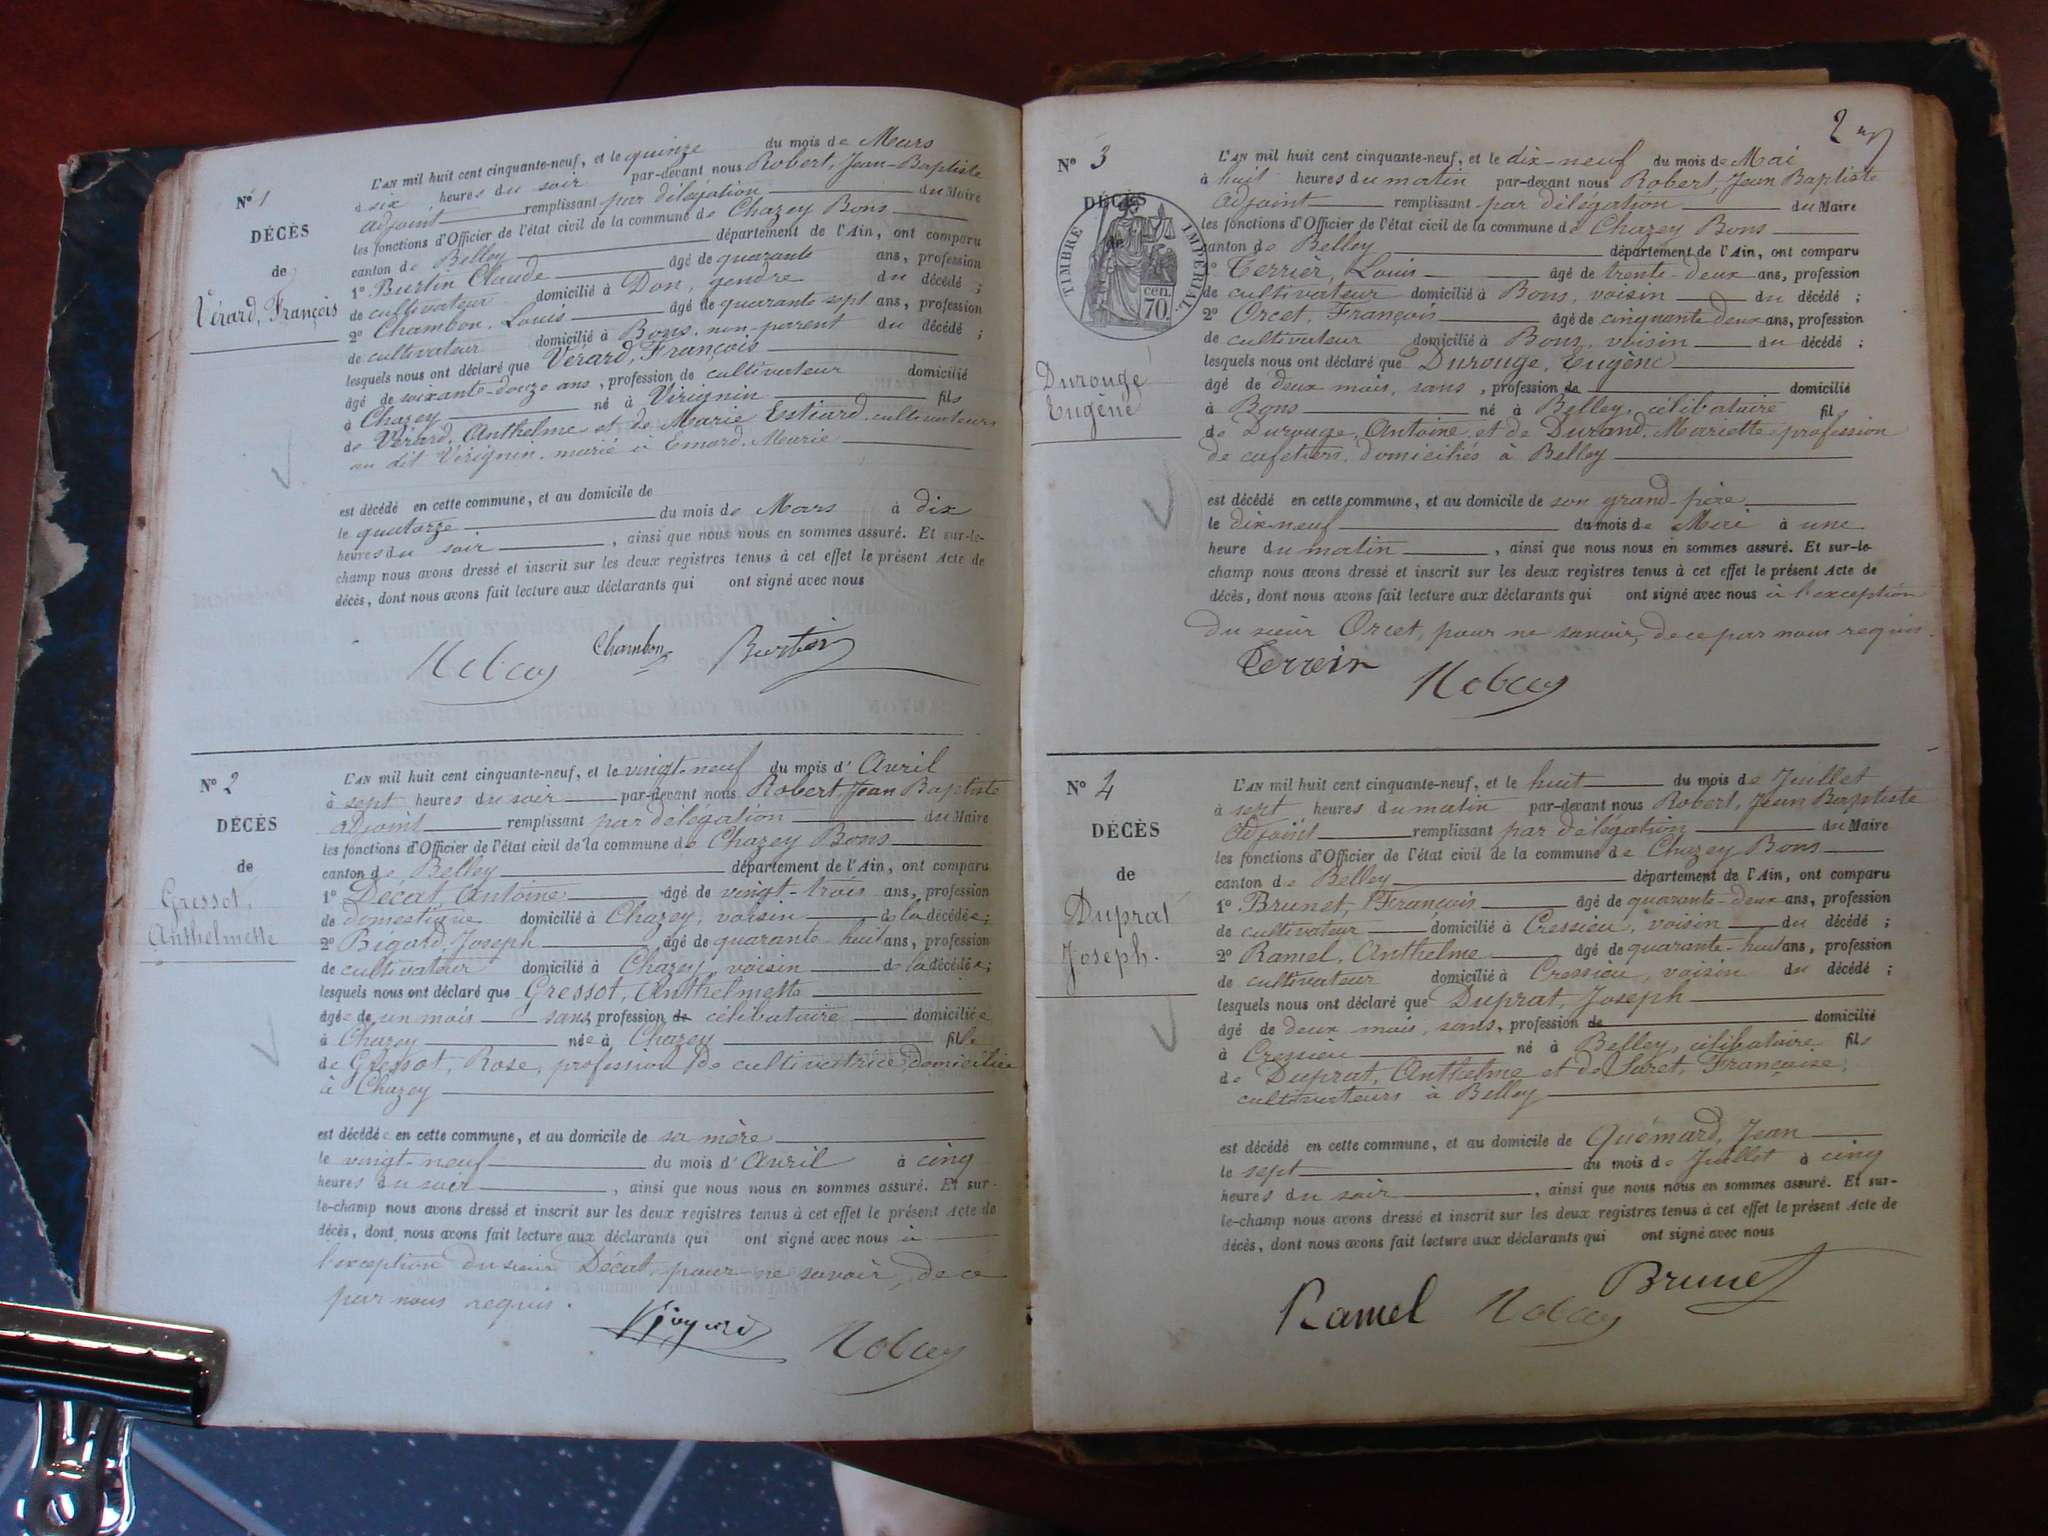 N° 1
DÉCÈS
de
Vérard, François
L'AN mil huit cent cinquante-neuf, et le quinze du mois de Mars
à six heures du soir par-devant nous Robert, Jean-Baptiste
adjoint remplissant par délégation du Maire
les fonctions d'Officier de l'état civil de la commune de Chazey Bons
canton de Belley département de l'Ain, ont comparu
1° Burtin Claude âgé de quarante ans, profession
de cultivateur domicilié à Don, gendre du décédé ;
2° Chambon, Louis âgé de quarante sept ans, profession
de cultivateur domicilié à Bons, non-parent du décédé ;
lesquels nous ont déclaré que Vérard, François
âgé de soixante-douze ans, profession de cultivateur domicilié
à Chazey né à Virignin fils
de Vérard, Anthelme et de Marie Estiard, cultivateurs
au dit Virignin, marié à Emard, Marie
est décédé en cette commune, et au domicile de
le quatorze du mois de Mars à dix
heures du soir, ainsi que nous nous en sommes assuré. Et sur-le-
champ nous avons dressé et inscrit sur les deux registres tenus à cet effet le présent Acte de
décès, dont nous avons fait lecture aux déclarants qui ont signé avec nous
Chambon Burtin
N° 2
DÉCÈS
de
Gressot,
Anthelmette
L'AN mil huit cent cinquante-neuf, et le vingt-neuf du mois d'Avril
à sept heures du soir par-devant nous Robert, Jean Baptiste
adjoint remplissant par délégation du Maire
les fonctions d'Officier de l'état civil de la commune de Chazey Bons
canton de Belley département de l'Ain, ont comparu
1° Décat, Antoine âgé de vingt-trois ans, profession
de domestique domicilié à Chazey, voisin de la décédée;
2° Bigard, Joseph âgé de quarante-huit ans, profession
de cultivateur domicilié à Chazey, voisin de la décédée;
lesquels nous ont déclaré que Gressot, Anthelmette
âgée de un mois sans profession de célibataire domiciliée
à Chazey née à Chazey fille
de Gressot, Rose, profession de cultivatrice, domiciliée
à Chazey
est décédée en cette commune, et au domicile de sa mère
le vingt-neuf du mois d'Avril à cinq
heures du soir, ainsi que nous nous en sommes assuré. Et sur-
le-champ nous avons dressé et inscrit sur les deux registres tenus à cet effet le présent Acte de
décès, dont nous avons fait lecture aux déclarants qui ont signé avec nous à
l'exception du sieur Décat, pour ne savoir, de ce
par nous requis.
N° 3
DÉCÈS
de
TIMBRE IMPÉRIAL.
cen.
70.
Durouge
Eugène
L'AN mil huit cent cinquante-neuf, et le dix-neuf du mois de Mai
à huit heures du matin par-devant nous Robert, Jean Baptiste
adjoint remplissant par délégation du Maire
les fonctions d'Officier de l'état civil de la commune de Chazey Bons
canton de Belley département de l'Ain, ont comparu
1° Terrier, Louis âgé de trente-deux ans, profession
de cultivateur domicilié à Bons, voisin du décédé ;
2° Orcet, François âgé de cinquante deux ans, profession
de cultivateur domicilié à Bons, voisin du décédé ;
lesquels nous ont déclaré que Durouge, Eugène
âgé de deux mois, sans, profession de domicilié
à Bons né à Belley, célibataire fils
de Durouge, Antoine et de Durand, Mariette, profession
de cafetiers, domiciliés à Belley
est décédé en cette commune, et au domicile de son grand-père
le dix-neuf du mois de Mai à une
heure du matin, ainsi que nous nous en sommes assuré. Et sur-le-
champ nous avons dressé et inscrit sur les deux registres tenus à cet effet le présent Acte de
décès, dont nous avons fait lecture aux déclarants qui ont signé avec nous à l'exception
du sieur Orcet, pour ne savoir, de ce par nous requis.
N° 4
DÉCÈS
de
Duprat
Joseph.
L'AN mil huit cent cinquante-neuf, et le huit du mois de Juillet
à sept heures du matin par-devant nous Robert, Jean Baptiste
Adjoint remplissant par délégation du Maire
les fonctions d'Officier de l'état civil de la commune de Chazey Bons
canton de Belley département de l'Ain, ont comparu
1° Brunet, François âgé de quarante-deux ans, profession
de cultivateur domicilié à Cressieu, voisin du décédé ;
2° Ramel, Anthelme âgé de quarante-huit ans, profession
de cultivateur domicilié à Cressieu, voisin du décédé ;
lesquels nous ont déclaré que Duprat, Joseph
âgé de deux mois, sans, profession de domicilié
à Cressieu né à Belley, célibataire fils
de Duprat, Anthelme et de Suret, Françoise,
cultivateurs à Belley
est décédé en cette commune, et au domicile de Quémard, Jean
le sept du mois de Juillet à cinq
heures du soir, ainsi que nous nous en sommes assuré. Et sur-
le-champ nous avons dressé et inscrit sur les deux registres tenus à cet effet le présent Acte de
décès, dont nous avons fait lecture aux déclarants qui ont signé avec nous
Ramel Brunet